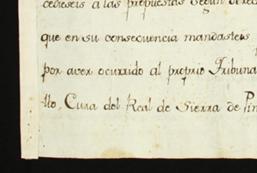 cedieseis a las propuestas segun
que en su consecuencia mandasteis
por aver ocurrido al proprio Tribuna
llo, Cura del Real de Sierra de Pin